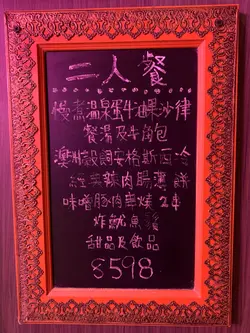 二人餐
慢煮温泉蛋牛油果沙律
餐湯及牛角包
澳洲穀飼安格斯西冷
經典辣肉腸薄餅
味噌豚肉串燒2本
炸魷魚鬚
甜品及飲品
$598